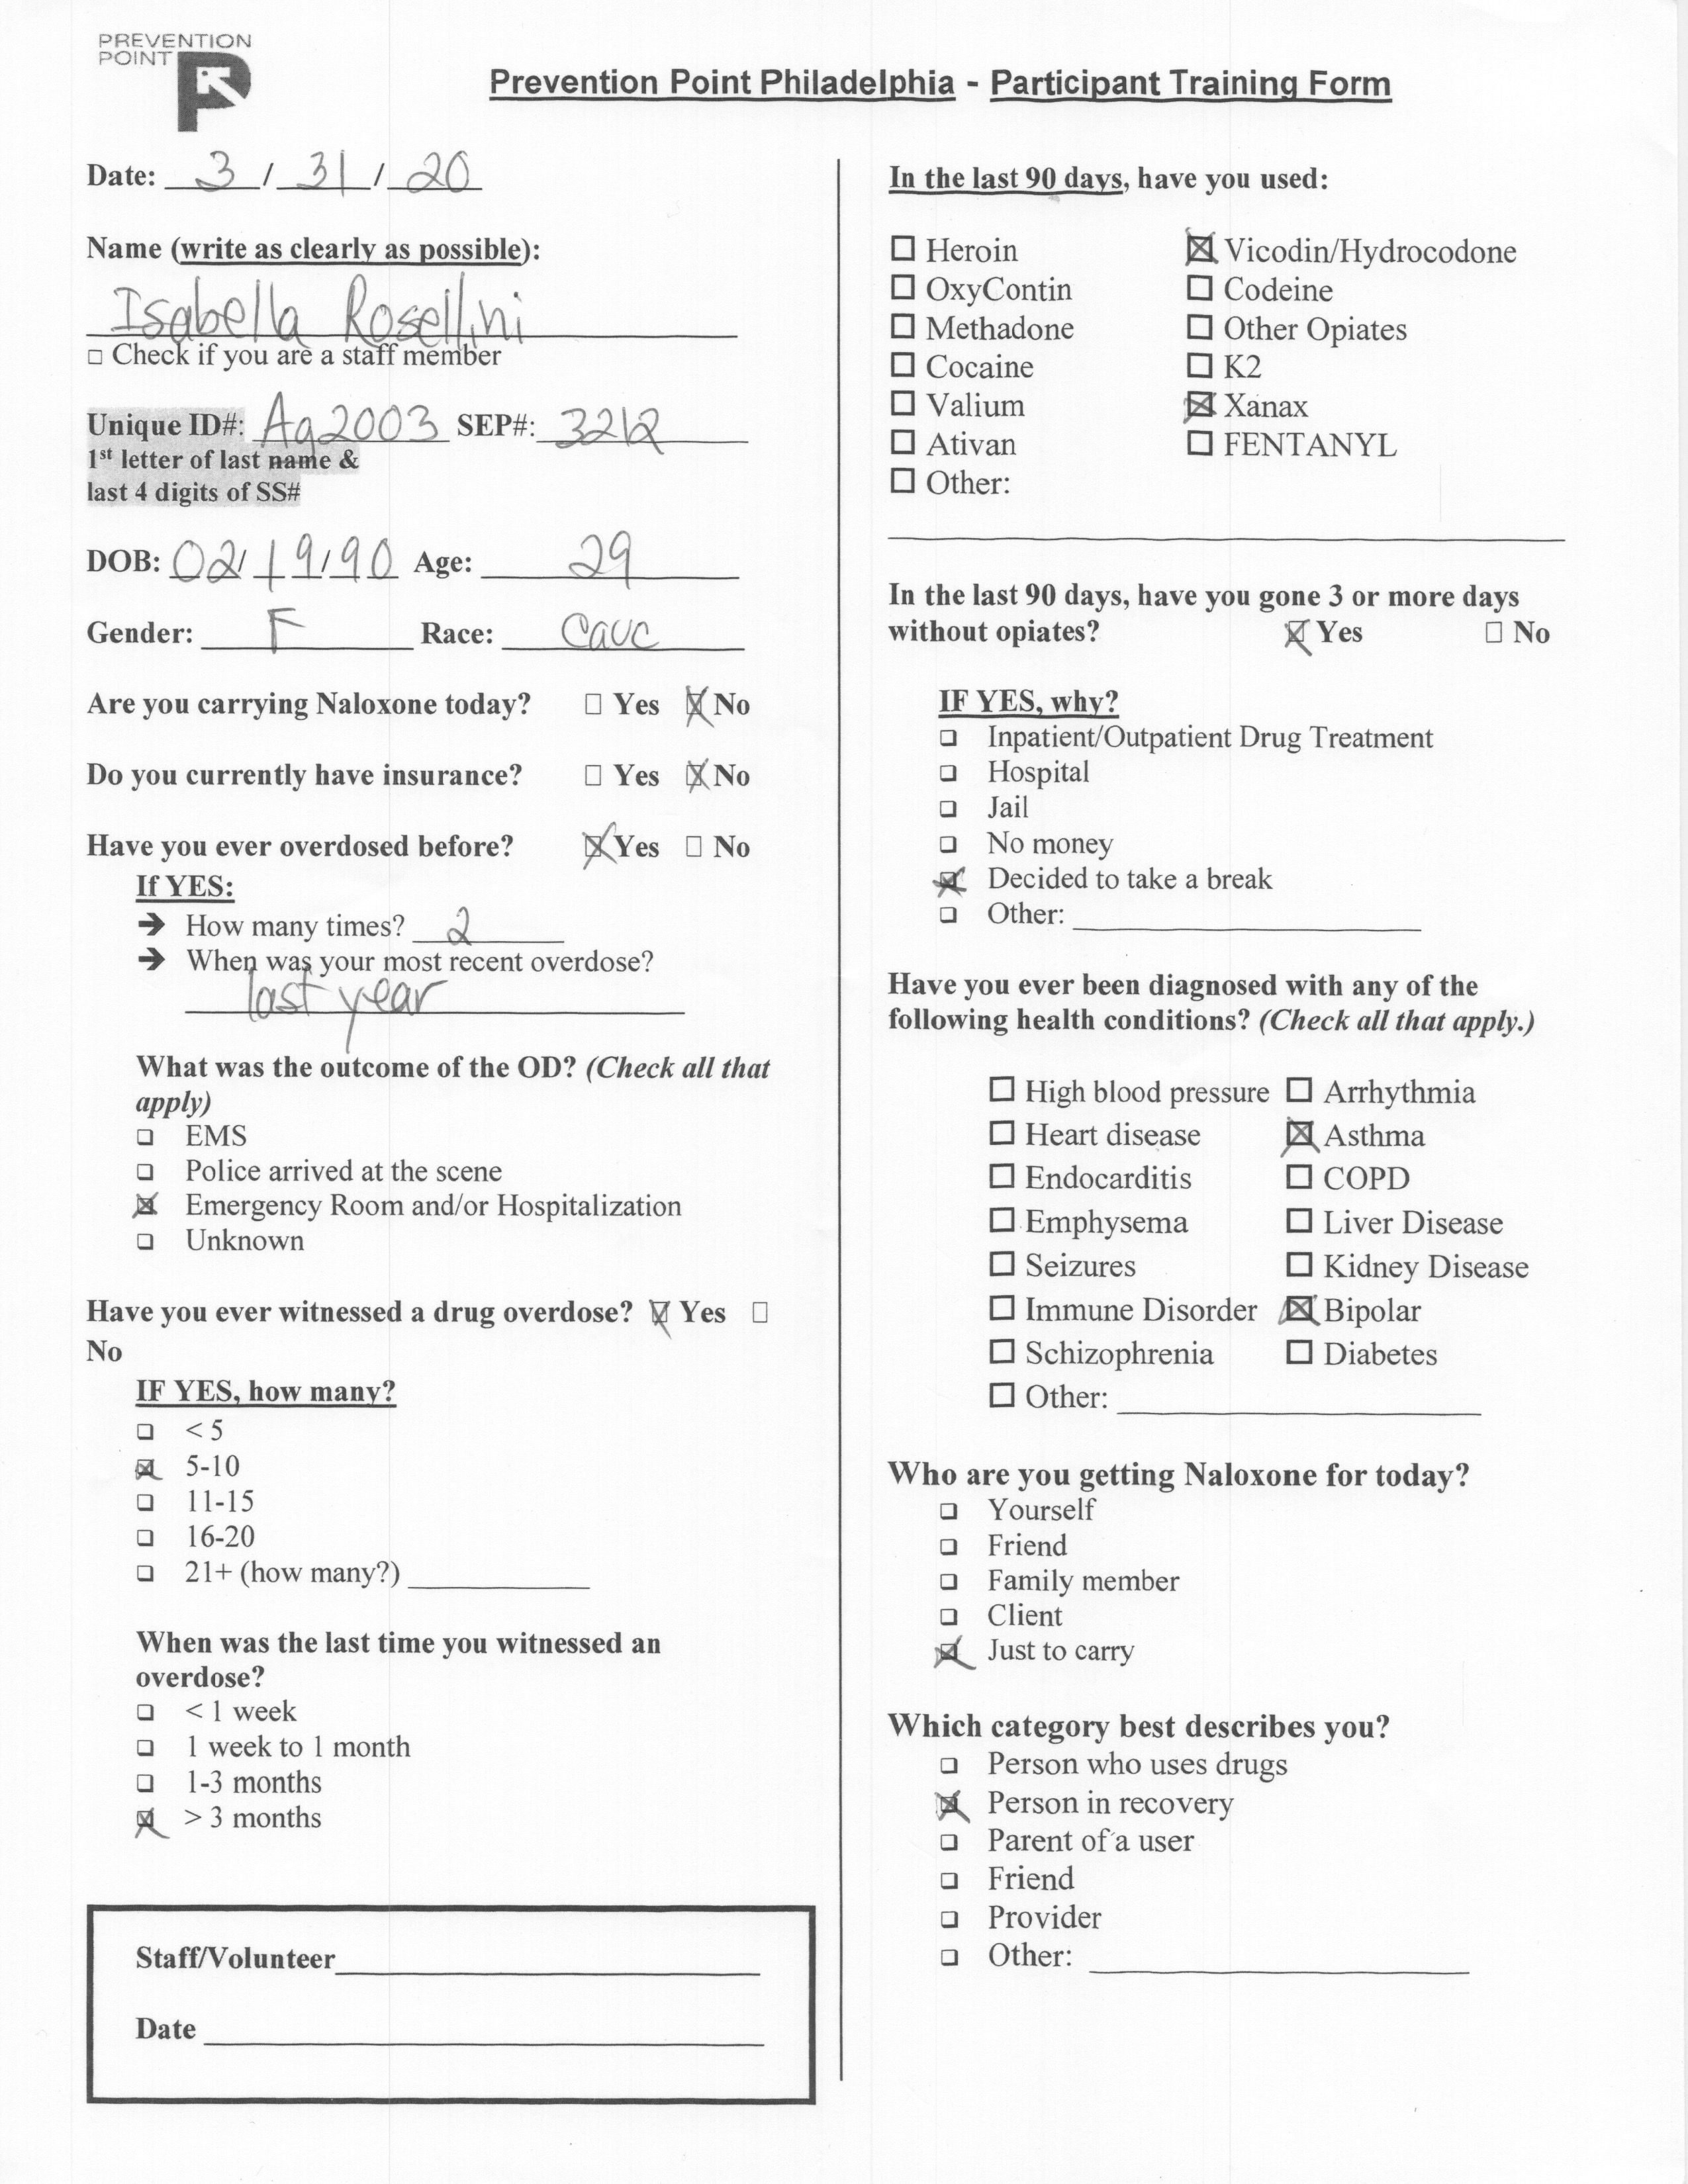 PREVENTION
POINT
Prevention Point Philadelphia - Participant Training Form
Date: 3 / 31 / 20
Name (write as clearly as possible):
Isabella Rosellini
☐ Check if you are a staff member
Unique ID#: Ag2003 SEP#: 3212
1st letter of last name &
last 4 digits of SS#
DOB: 02/19/90 Age: 29
Gender: F Race: Cauc
Are you carrying Naloxone today? ☐ Yes ☒ No
Do you currently have insurance? ☐ Yes ☒ No
Have you ever overdosed before? ☒ Yes ☐ No
If YES:
➔ How many times? 2
➔ When was your most recent overdose?
last year
What was the outcome of the OD? (Check all that
apply)
☐ EMS
☐ Police arrived at the scene
☒ Emergency Room and/or Hospitalization
☐ Unknown
Have you ever witnessed a drug overdose? ☒ Yes ☐
No
IF YES, how many?
☐ < 5
☒ 5-10
☐ 11-15
☐ 16-20
☐ 21+ (how many?)
When was the last time you witnessed an
overdose?
☐ < 1 week
☐ 1 week to 1 month
☐ 1-3 months
☒ > 3 months
Staff/Volunteer
Date
In the last 90 days, have you used:
☐ Heroin ☒ Vicodin/Hydrocodone
☐ OxyContin ☐ Codeine
☐ Methadone ☐ Other Opiates
☐ Cocaine ☐ K2
☐ Valium ☒ Xanax
☐ Ativan ☐ FENTANYL
☐ Other:
In the last 90 days, have you gone 3 or more days
without opiates? ☒ Yes ☐ No
IF YES, why?
☐ Inpatient/Outpatient Drug Treatment
☐ Hospital
☐ Jail
☐ No money
☒ Decided to take a break
☐ Other:
Have you ever been diagnosed with any of the
following health conditions? (Check all that apply.)
☐ High blood pressure ☐ Arrhythmia
☐ Heart disease ☒ Asthma
☐ Endocarditis ☐ COPD
☐ Emphysema ☐ Liver Disease
☐ Seizures ☐ Kidney Disease
☐ Immune Disorder ☒ Bipolar
☐ Schizophrenia ☐ Diabetes
☐ Other:
Who are you getting Naloxone for today?
☐ Yourself
☐ Friend
☐ Family member
☐ Client
☒ Just to carry
Which category best describes you?
☐ Person who uses drugs
☒ Person in recovery
☐ Parent of a user
☐ Friend
☐ Provider
☐ Other: